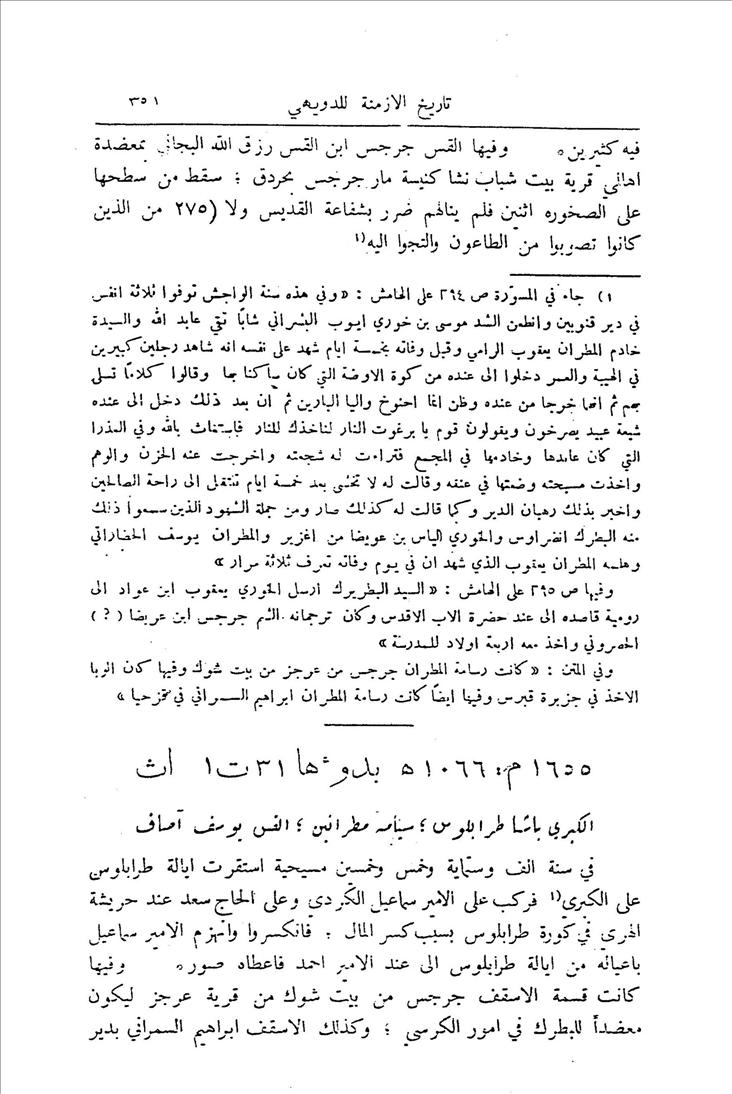 تاريخ الازمنة للدويهي ٣٥١
فيه كثيرين٭ وفيها القس جرجس ابن القس رزق الله البجاني بمعضدة
اهالي قرية بيت شباب نشا كنيسة مار جرجس بحردق ؛ سقط من سطحها
على الصخوره اثنين فلم ينالهم ضرر بشفاعة القديس ولا (٢٧٥ من الذين
كانوا تصوبوا من الطاعون والتجوا اليه(١
١) جاء في المسوّدة ص ٢٩٤ على الهامش : «وفي هذه سنة الواحش توفوا ثلاثة انفس
في دير قنوبين وانطعن الشد موسى بن خوري ايوب البشراني شابًا تقي عابد الله والسيدة
خادم المطران يعقوب الرامي وقبل وفاته بخمسة ايام شهد على نفسه انه شاهد رجلين كبيرين
في الهيبة والعمر دخلوا الى عنده من كوة الاوضة التي كان ساكنا بها وقالوا كلامًا
ثم انهما خرجا من عنده وظن انها احنوخ واليا البارين ثم ان بعد ذلك دخل الى عنده
شيعة عبيد يصرخون ويقولون قوم يا برغوت النار لناخذك للنار فاستغاث بالله وفي العذرا
التي كان عابدها وخادمها في المجمع فتراءت له شجعته واخرجت عنه الحزن والوهم
واخذت مسبحته وضمتها في عنقه وقالت له لا تخشى بعد خمسة ايام تنتقل الى راحة الصالحين
واخبر بذلك رهبان الدير وكما قالت له كذلك صار ومن جملة الشهود الذين سمعوا ذلك
منه البطرك والخوري الياس بن عويضا من اغزير والمطران يوسف الحضاراتي
المطران يعقوب الذي شهد ان في يوم وفاته تعرف ثلاثة مرار »
وفيها ص ٢٩٥ على الهامش : «السيد البطريرك ارسل الخوري يعقوب ابن عواد الى
رومية قاصده الى عند حضرة الاب الاقدس وكان ترجمانه الشم جرجس ابن عريضا (؟)
الحصروني واخذ معه اربعة اولاد للمدرسة »
وفي المتن : «كانت رسامة المطران جرجس من عرجز من بيت شوك وفيها كان الربا
الاخذ في جزيرة قبرس وفيها ايضًا كانت رسامة المطران ابراهيم السمراني في قزحيا »
١٦٥٥ م : ١٠٦٦ ه بدوّها ٣١ ت١ اث
الكبري باشا طرابلوس ؛ سيامة مطرانين ؛ القس يوسف آصاف
في سنة الف وستماية وخمس وخمسين مسيحية استقرت ايالة طرابلوس
على الكبري(١ فركب على الامير سماعيل الكردي وعلى الحاج سعد عند حريشة
الهري في كورة طرابلوس بسبب كسر المال ؛ فانكسروا وانهزم الامير سماعيل
باعياله من ايالة طرابلوس الى عند الامير احمد فاعطاه صور٭ وفيها
كانت قسمة الاسقف جرجس من بيت شوك من قرية عرجز ليكون
معضداً للبطرك في امور الكرسي ؛ وكذلك الاسقف ابراهيم السمراني بدير